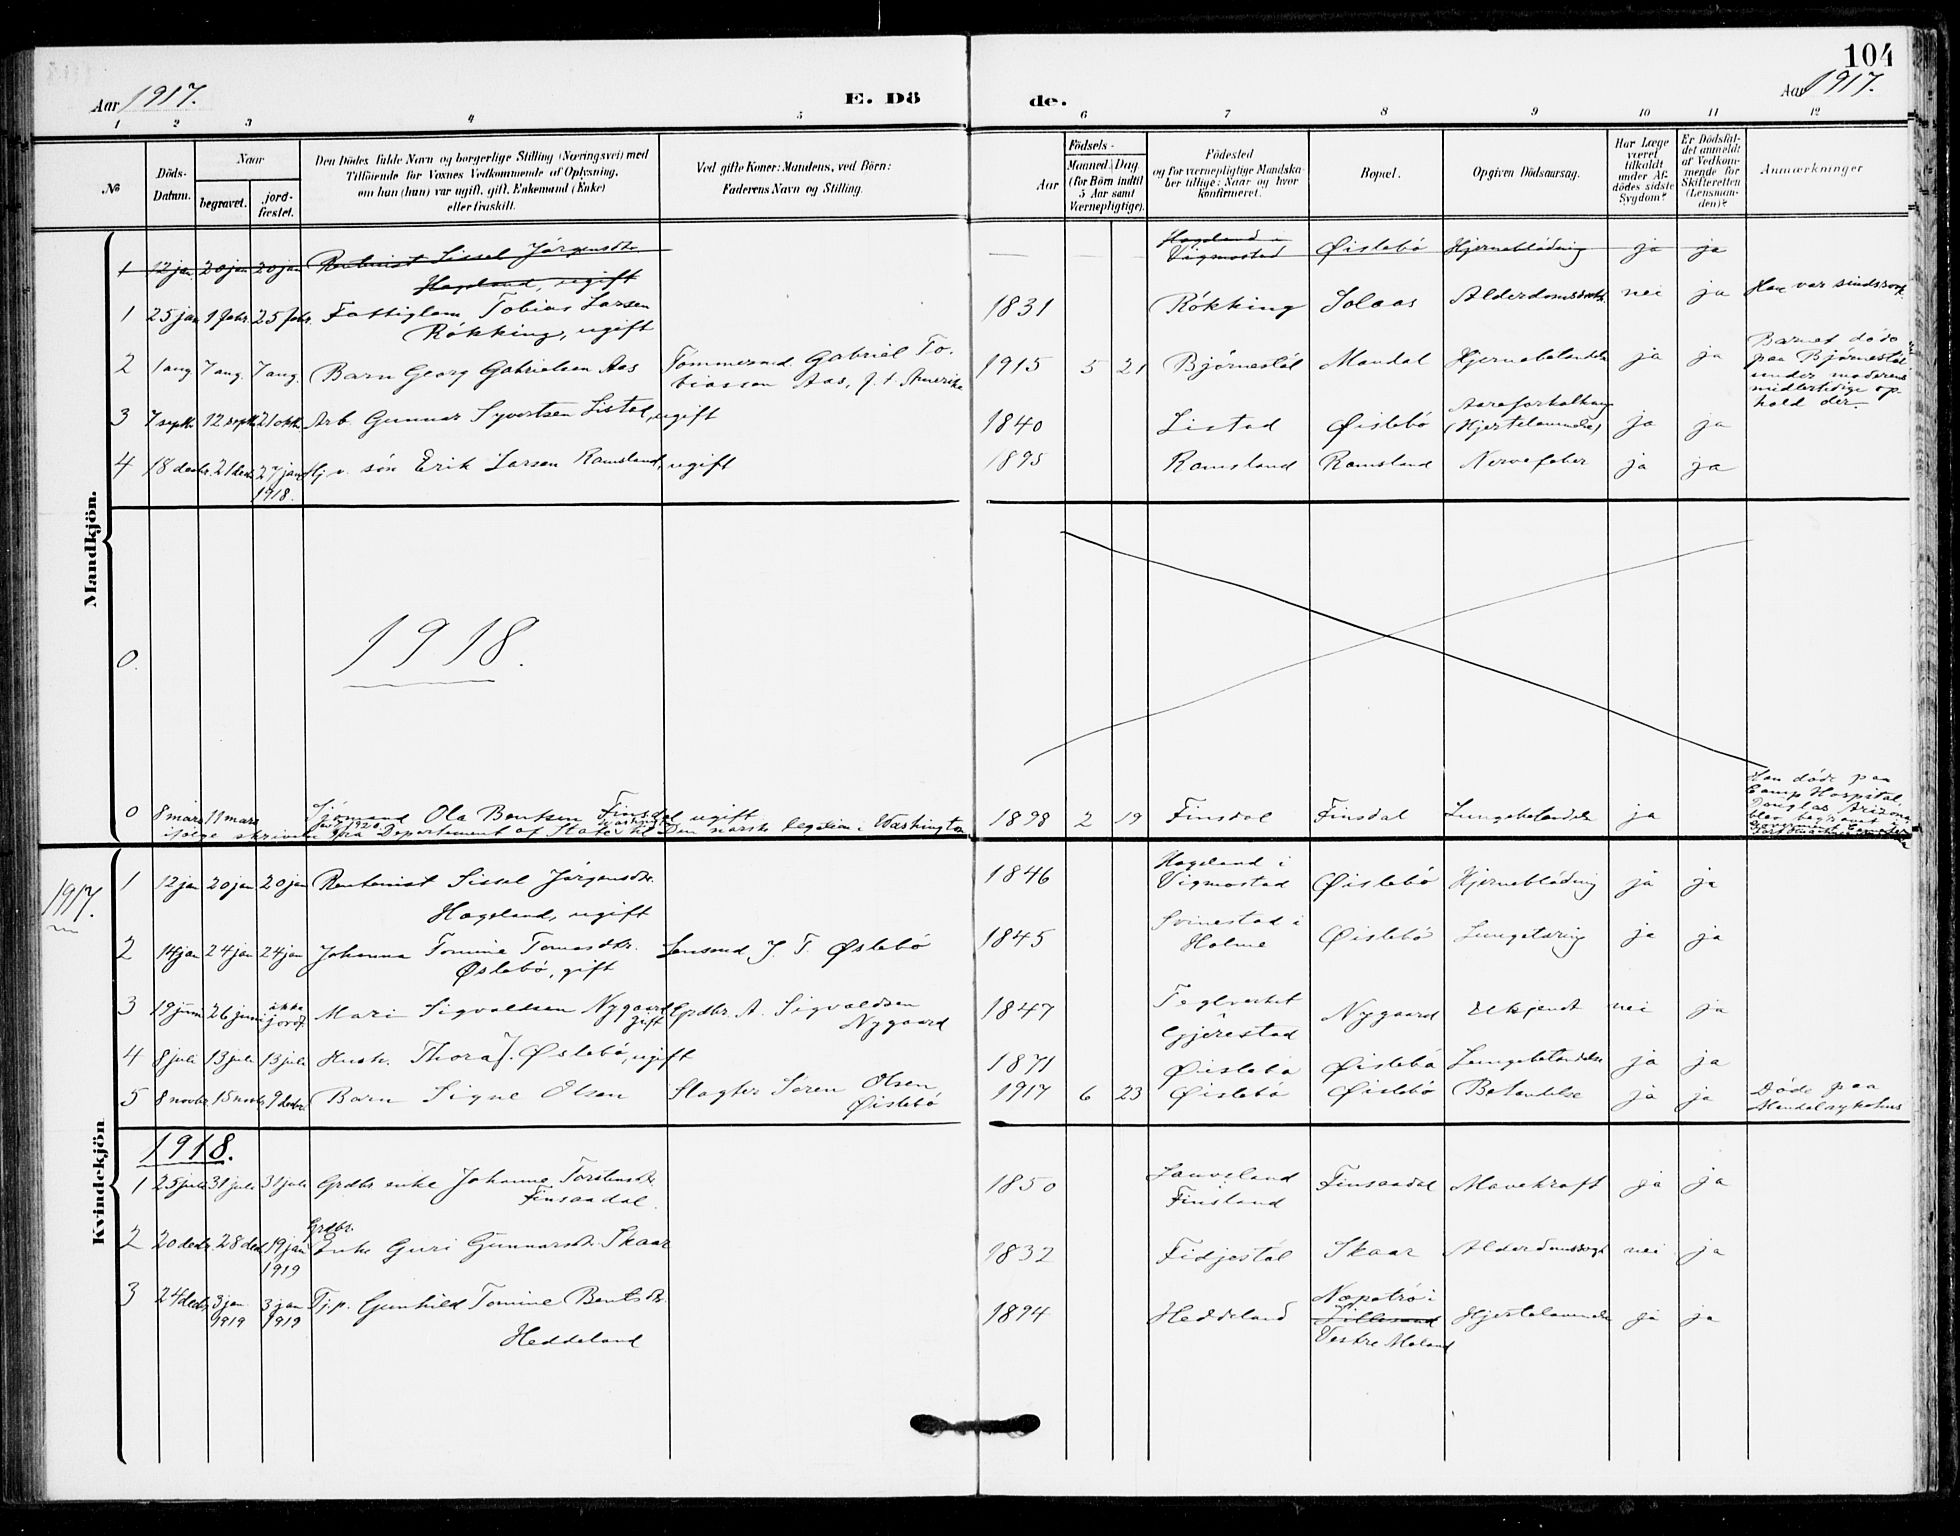 104
Aar 1917.
E. Dö
de.
Aar 1917.
1 2 3 4 5 6 7 8 9 10 11 12
№
Döds-Datum.
Naar
begravet.
jord-fæstet.
Den Dödes fulde Navn og borgerlige Stilling (Næringsvei) med
Tilföiende for Voxnes Vedkommende af Oplysning,
om hun (han) var ugift, gift, Enkemand (Enke)
eller fraskilt.
Ved gifte Koner: Mandens, ved Börn:
Faderens Navn og Stilling.
Födsels-
Aar
Maaned. Dag
(for Börn indtil
5 Aar samt
Værnepligtige).
Födested
og for værnepligtige Mandska-
ber tillige: Naar og hvor
konfirmeret.
Bopæl.
Opgiven Dödsaarsag.
Har Læge
været
tilkaldt
under Af-
dödes sidste
Sygdom?
Er Dödsfal-
det anmeldt
af Vedkom-
mende for
Skifteretten
(Lensman-
den)?
Anmærkninger
Mandkjön.
1 12 jan 20 jan 20 jan Rentenist Sissel Jörgensdtr. Hageland i Øislebö Hjerneblödning ja ja
Hageland, ugift Vigmostad
1 25 jan 1 febr. 25 febr. Fattiglem Tobias Larsen 1831 Rökking Solaas nei ja Han var sindssvak
Rökking, ugift
2 1 aug 7 aug. 7 aug. Barn Georg Gabrielsen Aas Tömmermd. Gabriel To- 1915 5 21 Bjørnestöl Mandal ja ja Barnet döde
biassen Aas, f. t. Amerika paa Bjørnestöl
under moderens
midlertidige op-
hold der.
3 7 septbr. 12 septb. 21 oktb. Arb. Gunnar Syvertsen Listad, ugift 1840 Listad Øislebö Aareforkalkning ja ja
4 18 decbr. 21 decb. 27 jan 1918. Gj. v. sön Erik Larsen Ramsland, ugift 1895 Ramsland Ramsland Nervefeber ja ja
0. 1918.
0 8 mars 11 mars Sjömand Ola Bentsen Finsdal ugift 1898 2 19 Finsdal Finsdal ja Han döde paa
Camp Hospital,
Douglas Arizona,
blev begravet
ifölge skrivelse fra Departement of State til Den norske legation i Washington
1917.
Kvindekjön
1 12 jan 20 jan 20 jan Rentenist Sissel Jörgensdtr. 1846 Hageland i Øislebö Hjerneblödning ja ja
Hageland, ugift Vigmostad
2 14 jan 24 jan 24 jan Johanna Tomine Tomasdtr. Lensmd. J. T. Øslebö 1845 Svinestad i Øislebö Lungetæring ja ja
Øslebö, gift Holme
3 19 juni 26 juni ikke jordf. Mari Sigvaldsen Nygaard Grdbr. A. Sigvaldsen 1847 Nygaard Ukjendt nei ja
gift Nygaard Gjerestad
4 8 juli 13 juli 13 juli Hush. Thora J. Øslebö, ugift 1871 Øislebö Øislebö Lungebetændelse ja ja
5 8 novbr. 15 novbr. 9 decbr. Barn Signe Olsen Slagter Sören Olsen 1917 6 23 Øislebö Øislebö Betændelse ja ja Döde paa
Øislebö Mandal sykehus
1918.
1 25 juli 31 juli 31 juli Grdbr enke Johanne Torstensdtr. 1850 Finsaadal Mavekræft ja ja
Finsaadal. Finsland
2 20 decbr. 28 decb 19 jan 1919 Grdbr. Enke Guri Gunnarsdtr. Skaar 1832 Fidjestöl Skaar nei ja
3 24 decbr. 3 jan 1919 3 jan 1919 Tj.p. Gunhild Tomine Bentsdtr. 1894 Heddeland ja ja
Heddeland Lillesand
Vestre Moland